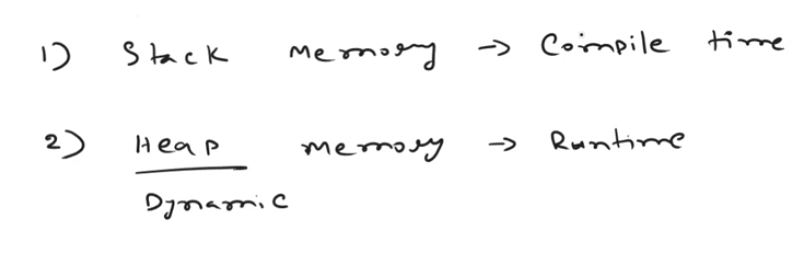 1) Stack Memory → Compile time
2) Heap Memory → Runtime
Dynamic